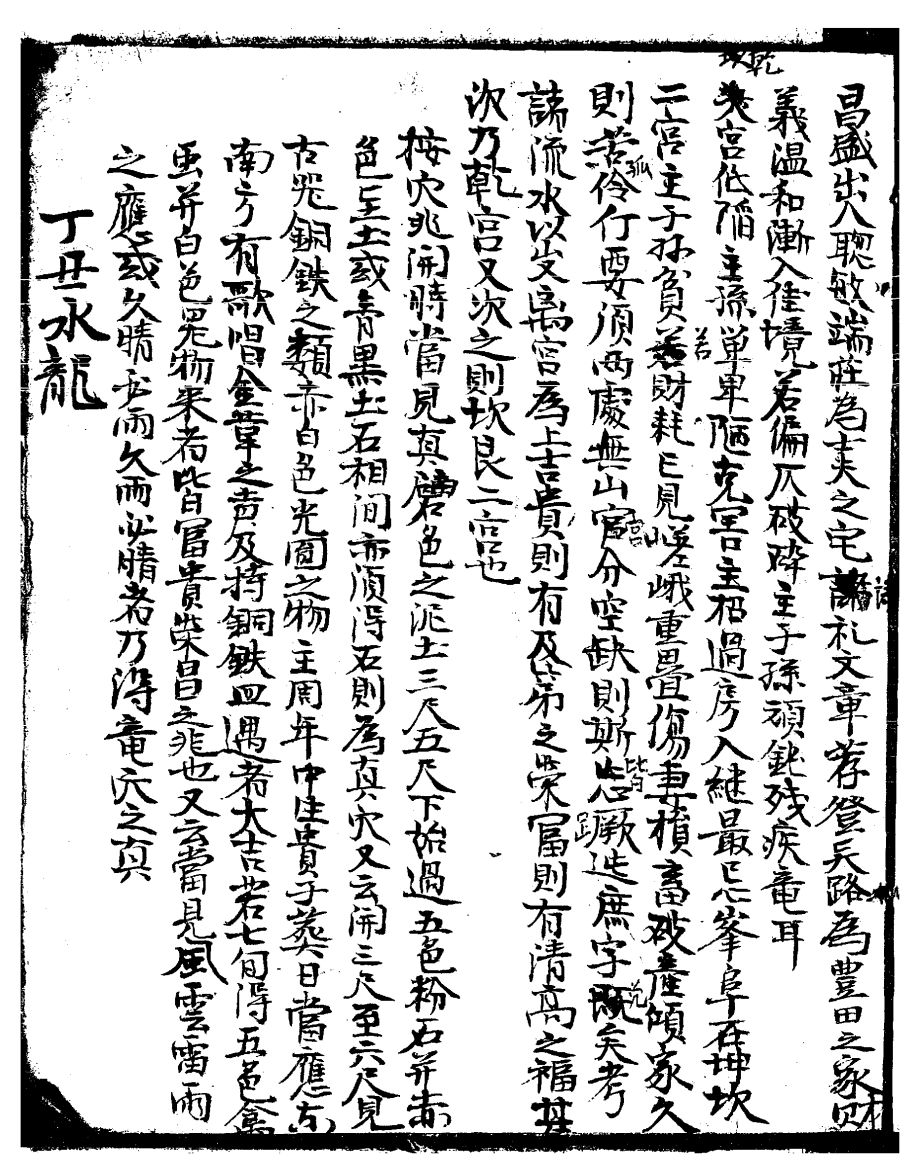 昌盛出入聪敏端莊為士夫之宅詩礼文章荐登天路為豊田之家財
義温和漸入佳境若偏仄破碎主子孫頑鈍残疾竜耳
宮低陥主孫単卑陋克害主招過房入継最忌峯阜在坤坎
二宮主子孫貧若財耗亡見嵯峨重疊傷妻損畜破産傾家久
則孤伶仃要須兩處無山宮分空缺則斯皆蹶迍庶字既矣考
諸流水以出离宮為上吉貴則有及第之栄冨則有清高之福其
次乃乾宮又次之則坎艮二宮也
按穴兆開時當見真礬色之泥土三尺五尺下始過五色粉石并赤
色至土或青黒土石相間亦須得石則為真穴又云開三尺至六尺見
古器銅鉄之類亦白色光圓之物主周年中生貴子葬日當應东
南方有歌唱金革之声及持銅鉄皿過者大吉若七旬得五色禽
虽并白色異物来者皆白冨貴栄昌之兆也又云當見風雲雷雨
之應或久晴必雨久雨必晴者乃得竜穴之真
丁丑水龍